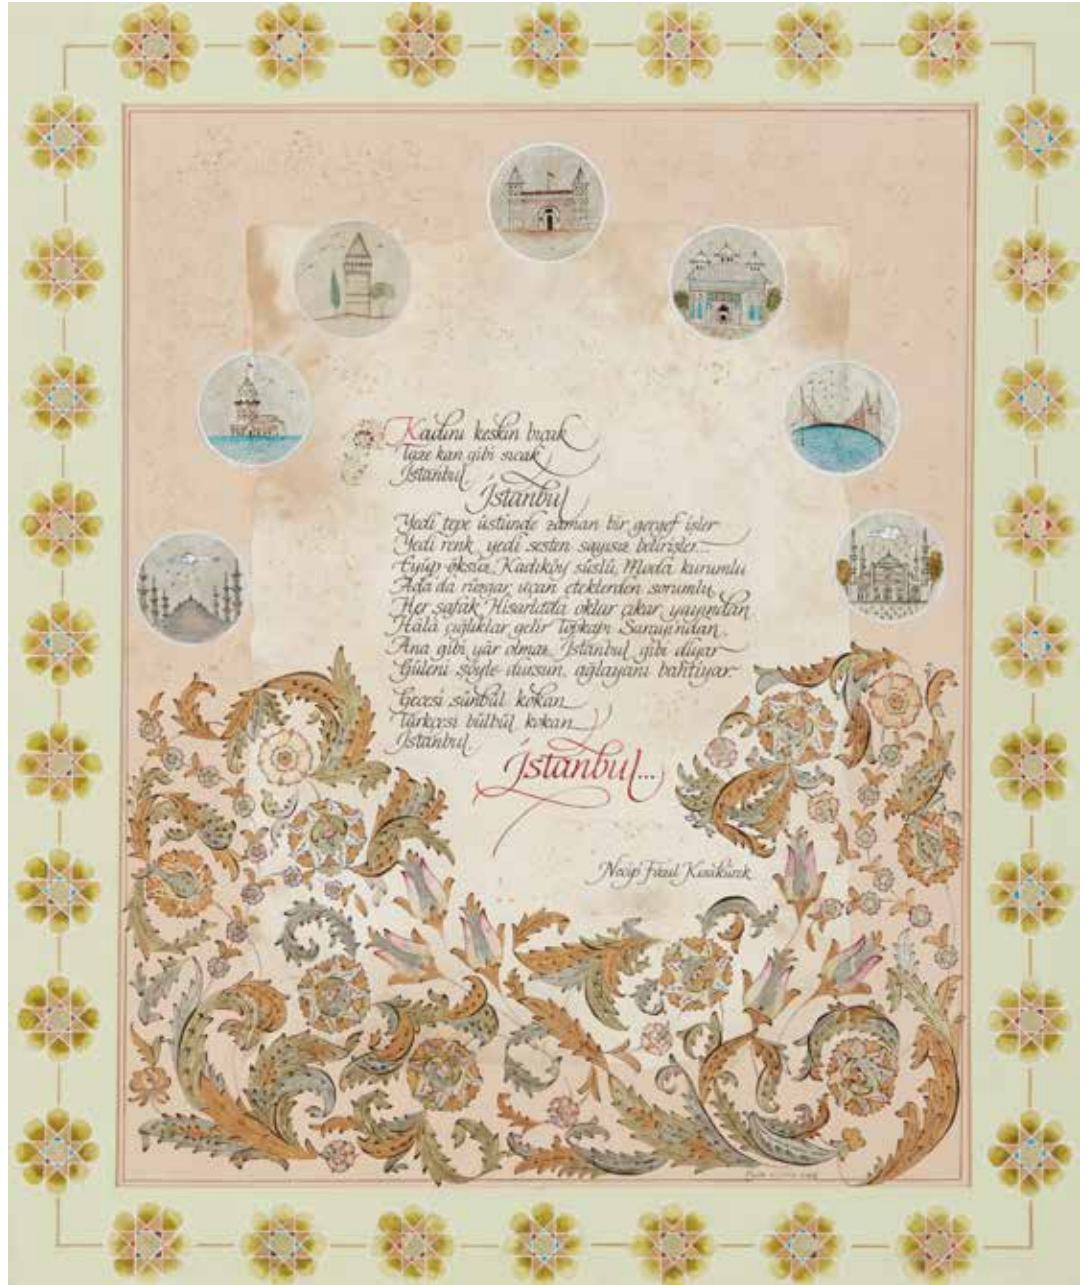 Kadını keskin bıçak
Taze kan gibi sıcak
İstanbul
İstanbul
Yedi tepe üstünde zaman bir gergef işler
Yedi renk, yedi sesten sayısız belirişler...
Eyüp öksüz, Kadıköy süslü, Moda kurumlu
Ada da rüzgar, uçan eteklerden sorumlu
Her şafak Hisarlarda oklar çıkar yayından
Hâlâ çığlıklar gelir Topkapı Sarayından
Ana gibi yâr olmaz, İstanbul gibi diyar
Güleni şöyle dursun, ağlayanı bahtiyar
Gecesi sünbül kokan
Türkçesi bülbül kokan
İstanbul
İstanbul...
Necip Fazıl Kısakürek